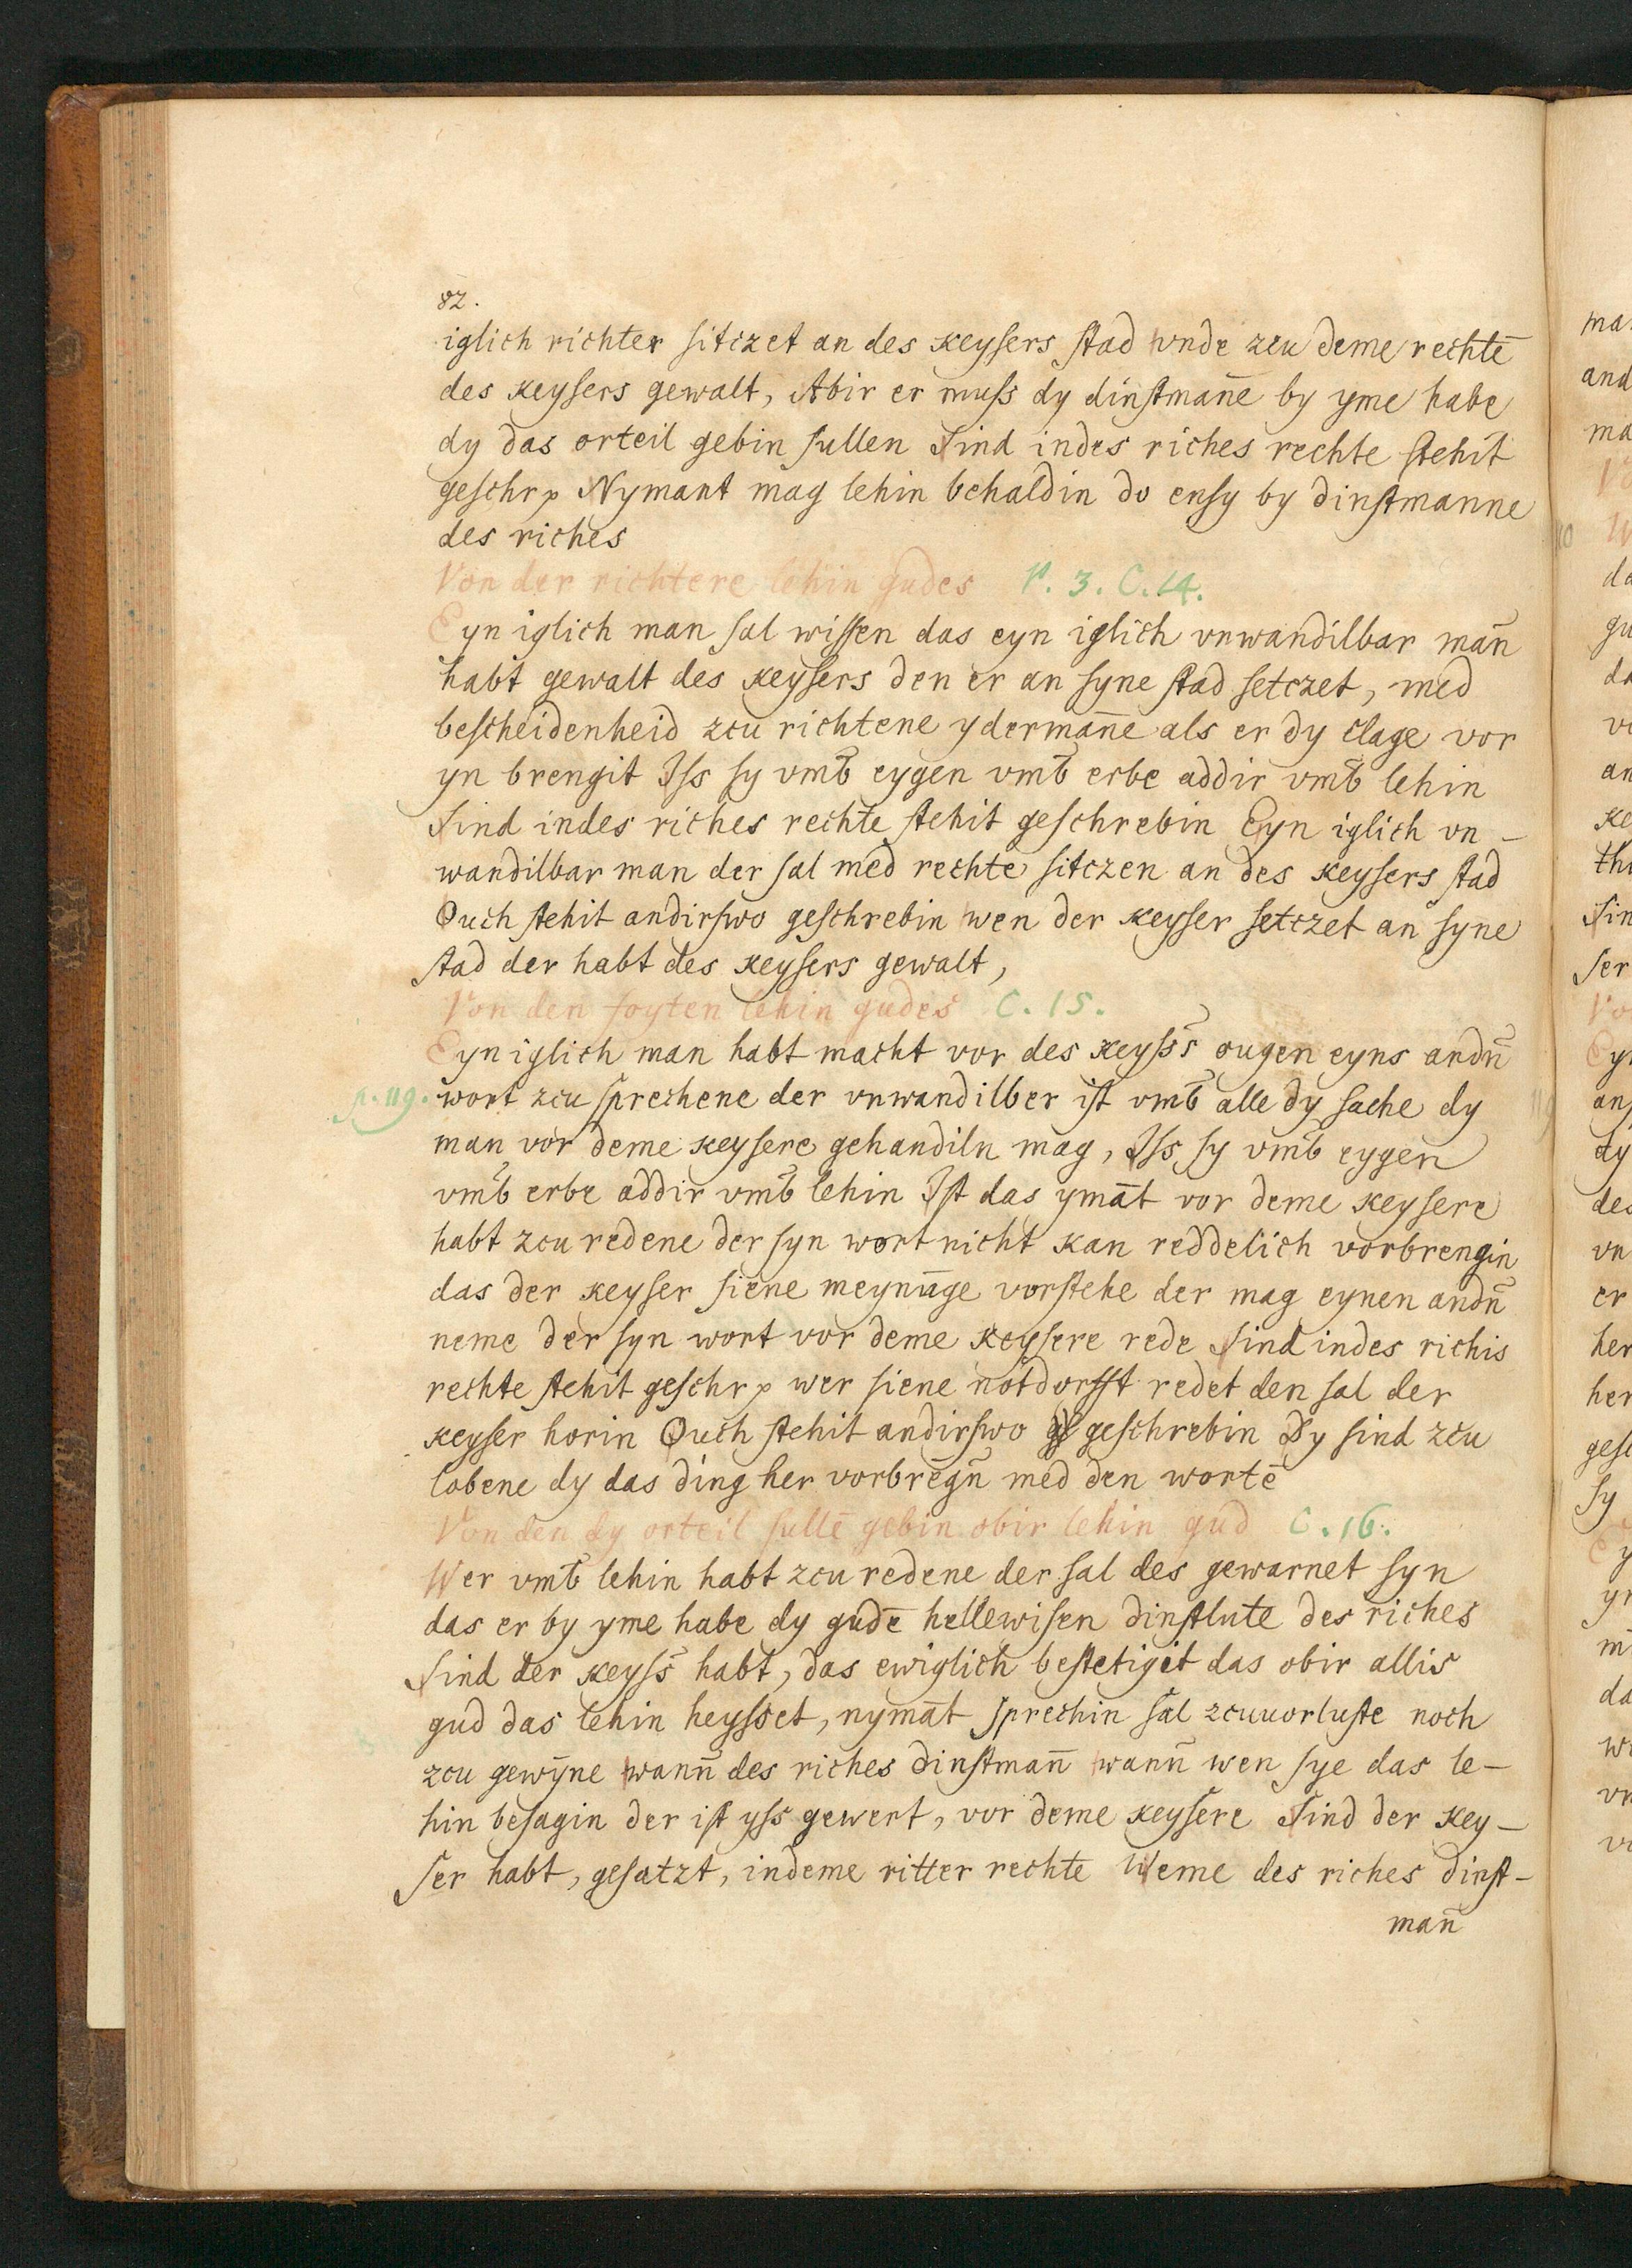 82.
iglich richter sitczet an des keysers stad vnde zcu deme rechtē
des keysers gewalt, Abir er muss dy dinstman̄e by yme habe
dy das orteil gebin sullen Sind indes riches rechte stehit
geschrp Nymant mag lehin behaldin do ensy by dinstmanne
des riches
Von der richtere lehin gudes P. 3. C. 14.
Eyn iglich man sal wissen das eyn iglich vnwandilbar man̄
habt gewalt des keysers den er an syne stad setczet, med
bescheidenheid zcu richtene yderman̄e als er dy clage vor
yn brengit Iss sy vmb̄ eygen vmb̄ erbe addir vmb̄ lehin
Sind indes riches rechte stehit geschrebin Eyn iglich vn-
wandilbar man der sal med rechte sitczen an des keysers stad
Ouch stehit andirswo geschrebin wen der keyser setczet an syne
stad der habt des keysers gewalt,
Von den foyten lehin gudes C. 15.
Eyn iglich man habt macht vor des keyss̄s ougen eyns andn̄
p. 119. wort zcu sprechene der vnwandilber ist vmb̄ alle dy sache dy
man vor deme keysere gehandiln mag, Iss sy vmb̄ eygen
vmb̄ erbe addir vmb̄ lehin Ist das ymāt vor deme keysere
habt zcu redene der syn wort nicht kan reddelich vorbrengin
das der keyser siene meynūge vorstehe der mag eynen andn̄
neme der syn wort vor deme keysere rede Sind indes richis
rechte stehit geschrp wer siene notdorfft redet den sal der
keyser horin Ouch stehit andirswo geschrebin Dy sind zcu
lobene dy das ding her vorbrēgn̄ med den wortē
Von den dy orteil sullē gebin obir lehin gud C. 16.
Wer vmb̄ lehin habt zcu redene der sal des gewarnet syn
das er by yme habe dy gudē hellewisen dinstlute des riches
Sind der keyss̄ habt, das ewiglich bestetigit das obir allis
gud das lehin heysset, nymāt sprechin sal zcuuorluste noch
zcu gewȳne wann̄ des riches dinstman̄ wann̄ wen sye das le-
hin besagin der ist yss gewert, vor deme keysere Sind der key-
ser habt, gesatzt, indeme ritter rechte Weme des riches dinst-
man̄